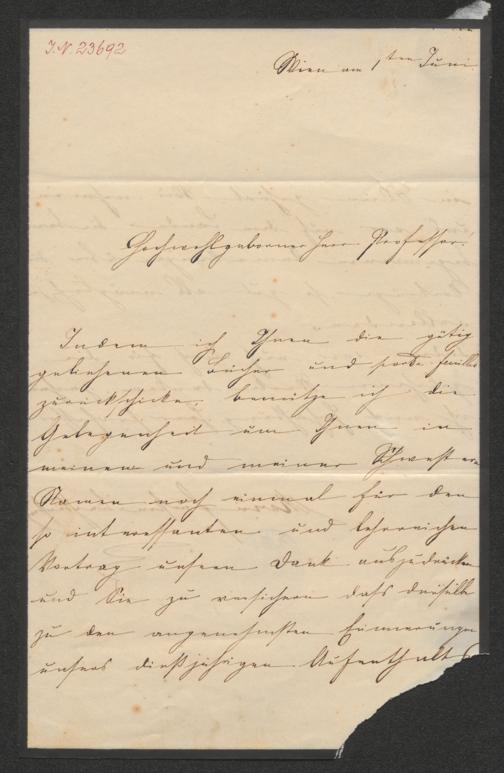 I.N. 23692
Wien am 1ten Juni
Hochwohlgeborner Herr Professor!
Indem ich Ihnen die gütig
geliehenen Bücher und
zurückschicke, benütze ich die
Gelegenheit um Ihnen in
meinem und meiner Schwestern
Namen noch einmal für den
so interessanten und lehrreichen
Vortrag unsern Dank auszudrücken
und Sie zu versichern dass derselbe
zu den angenehmsten Erinnerungen
unsers dießjährigen Aufenthaltes